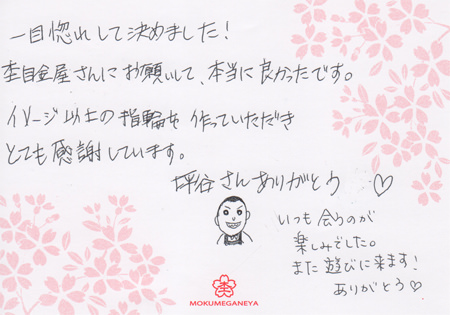 一目惚れして決めました!
杢目金屋さんにお願いして、本当に良かったです。
イメージ以上の指輪を作っていただき
とても感謝しています。
坪谷さんありがとう♡
いつも会うのが
楽しみでした。
また遊びに来ます!
ありがとう♡
杢
MOKUMEGANEYA